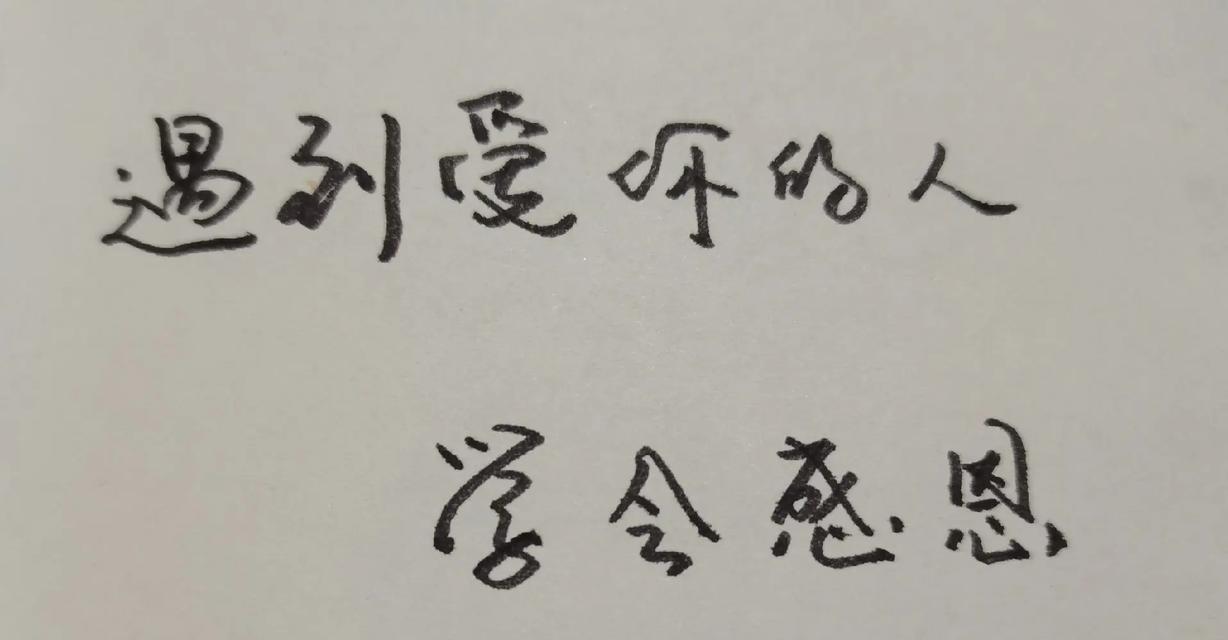 遇到爱你的人
学会感恩